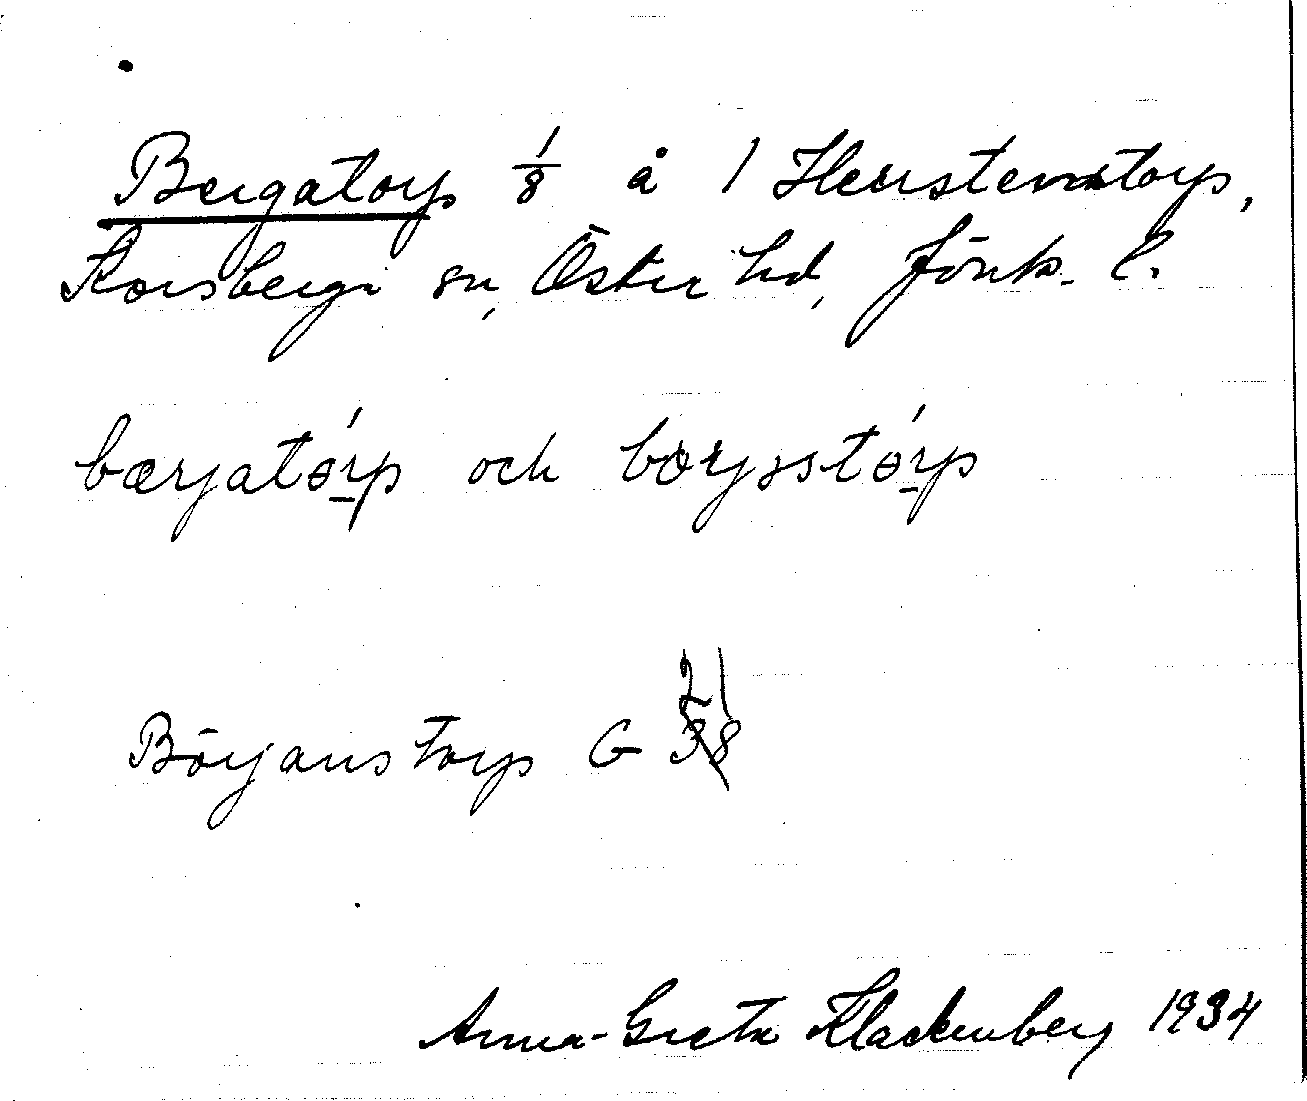 Bergatorp 1/8 å 1 Herrstemstorp,
Korsberga sn, Östra hd, Jönk. l.
bærjatórp och börjastórp
Börjanstorp G 21
Anna-Greta Klackenberg 1934